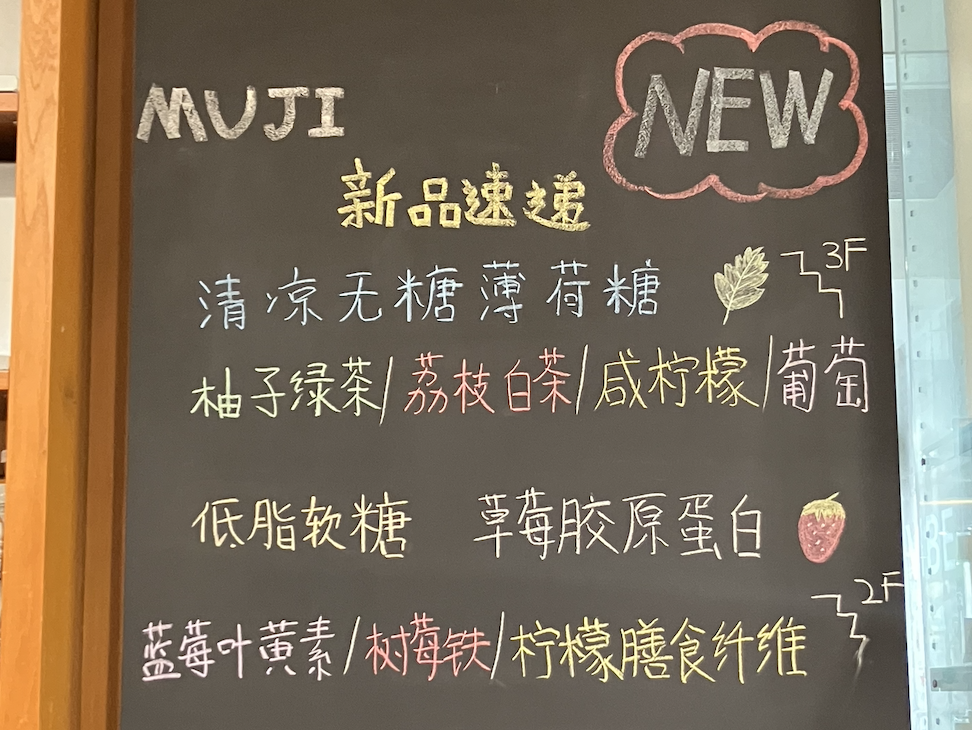 MUJI
NEW
新品速递
清凉无糖薄荷糖
3F
柚子绿茶/荔枝白茶/咸柠檬/葡萄
低脂软糖 草莓胶原蛋白
2F
蓝莓叶黄素/树莓铁/柠檬膳食纤维